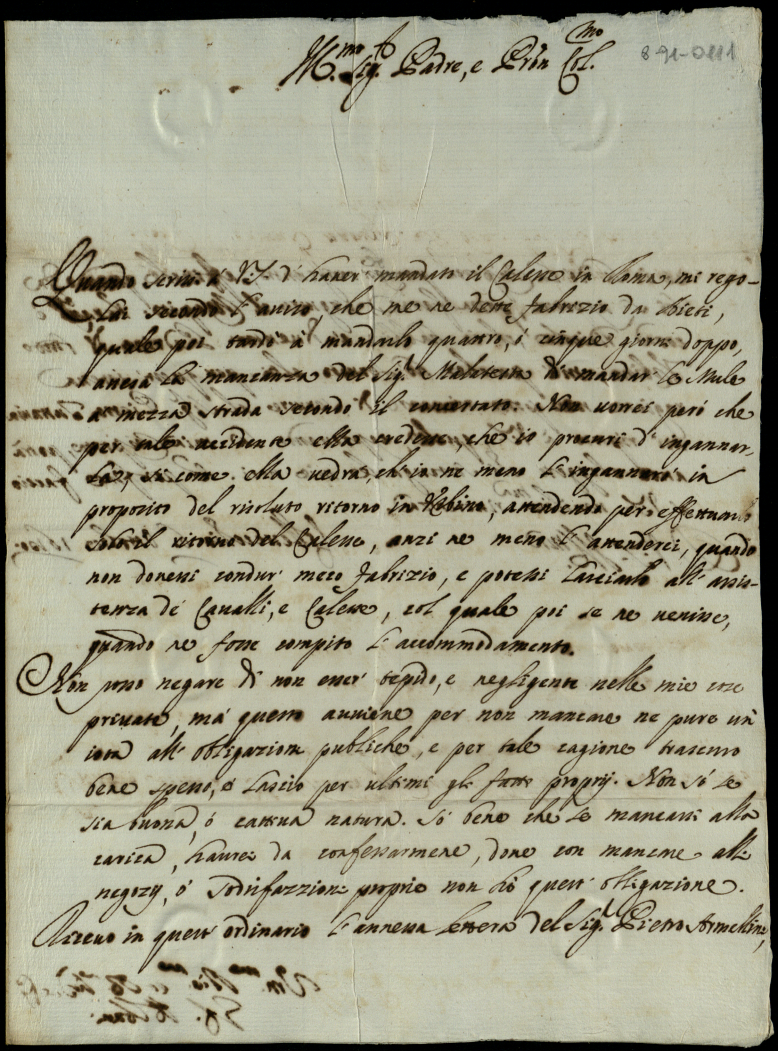 891-0111
M.mo Sig.r Padre, e Prõn Col.mo
Quando scrissi à V.S. d'hauer mandato il Calesse in Roma, mi rego-
lai secondo l'auiso, che me ne dette Fabrizio da Rieti,
quale poi tardò à mandarlo quattro, ò cinque giorni doppo,
attesa la mancanza del Sig.r Malatesta di mandar le Mule
a mezza strada secondo il concertato. Non uorrei però che
per tale accidente ella credesse, che io procuri d'ingannar-
la, si come ella uedrà, ch'io ne meno l'ingannarò in
proposito del risoluto ritorno in Vrbino, attendendo per effettuarlo
solo il ritorno del Calesse, anzi ne meno l'attenderei, quando
non douessi condur meco Fabrizio, e potessi lasciarlo all'assis-
tenza de' Caualli, e Calesse, col quale poi se ne uenisse,
quando ne fosse compito l'accommodamento.
Non posso negare di non esser tepido, e negligente nelle mie cose
priuate, mà questo auuiene per non mancare ne pure un
iota all'obligazioni publiche, e per tale cagione trascuro
bene spesso, e lascio per ultimi gli fatti proprij. Non sò se
sia buona, ò cattiua natura. Sò bene che se mancassi alla
carica, haurei da confessarmene, doue con mancare alli
negozij, ò sodisfazzioni proprie non hò quest'obligazione.
Riceuo in quest'ordinario l'annessa lettera del Sig.r Pietro Armellini,